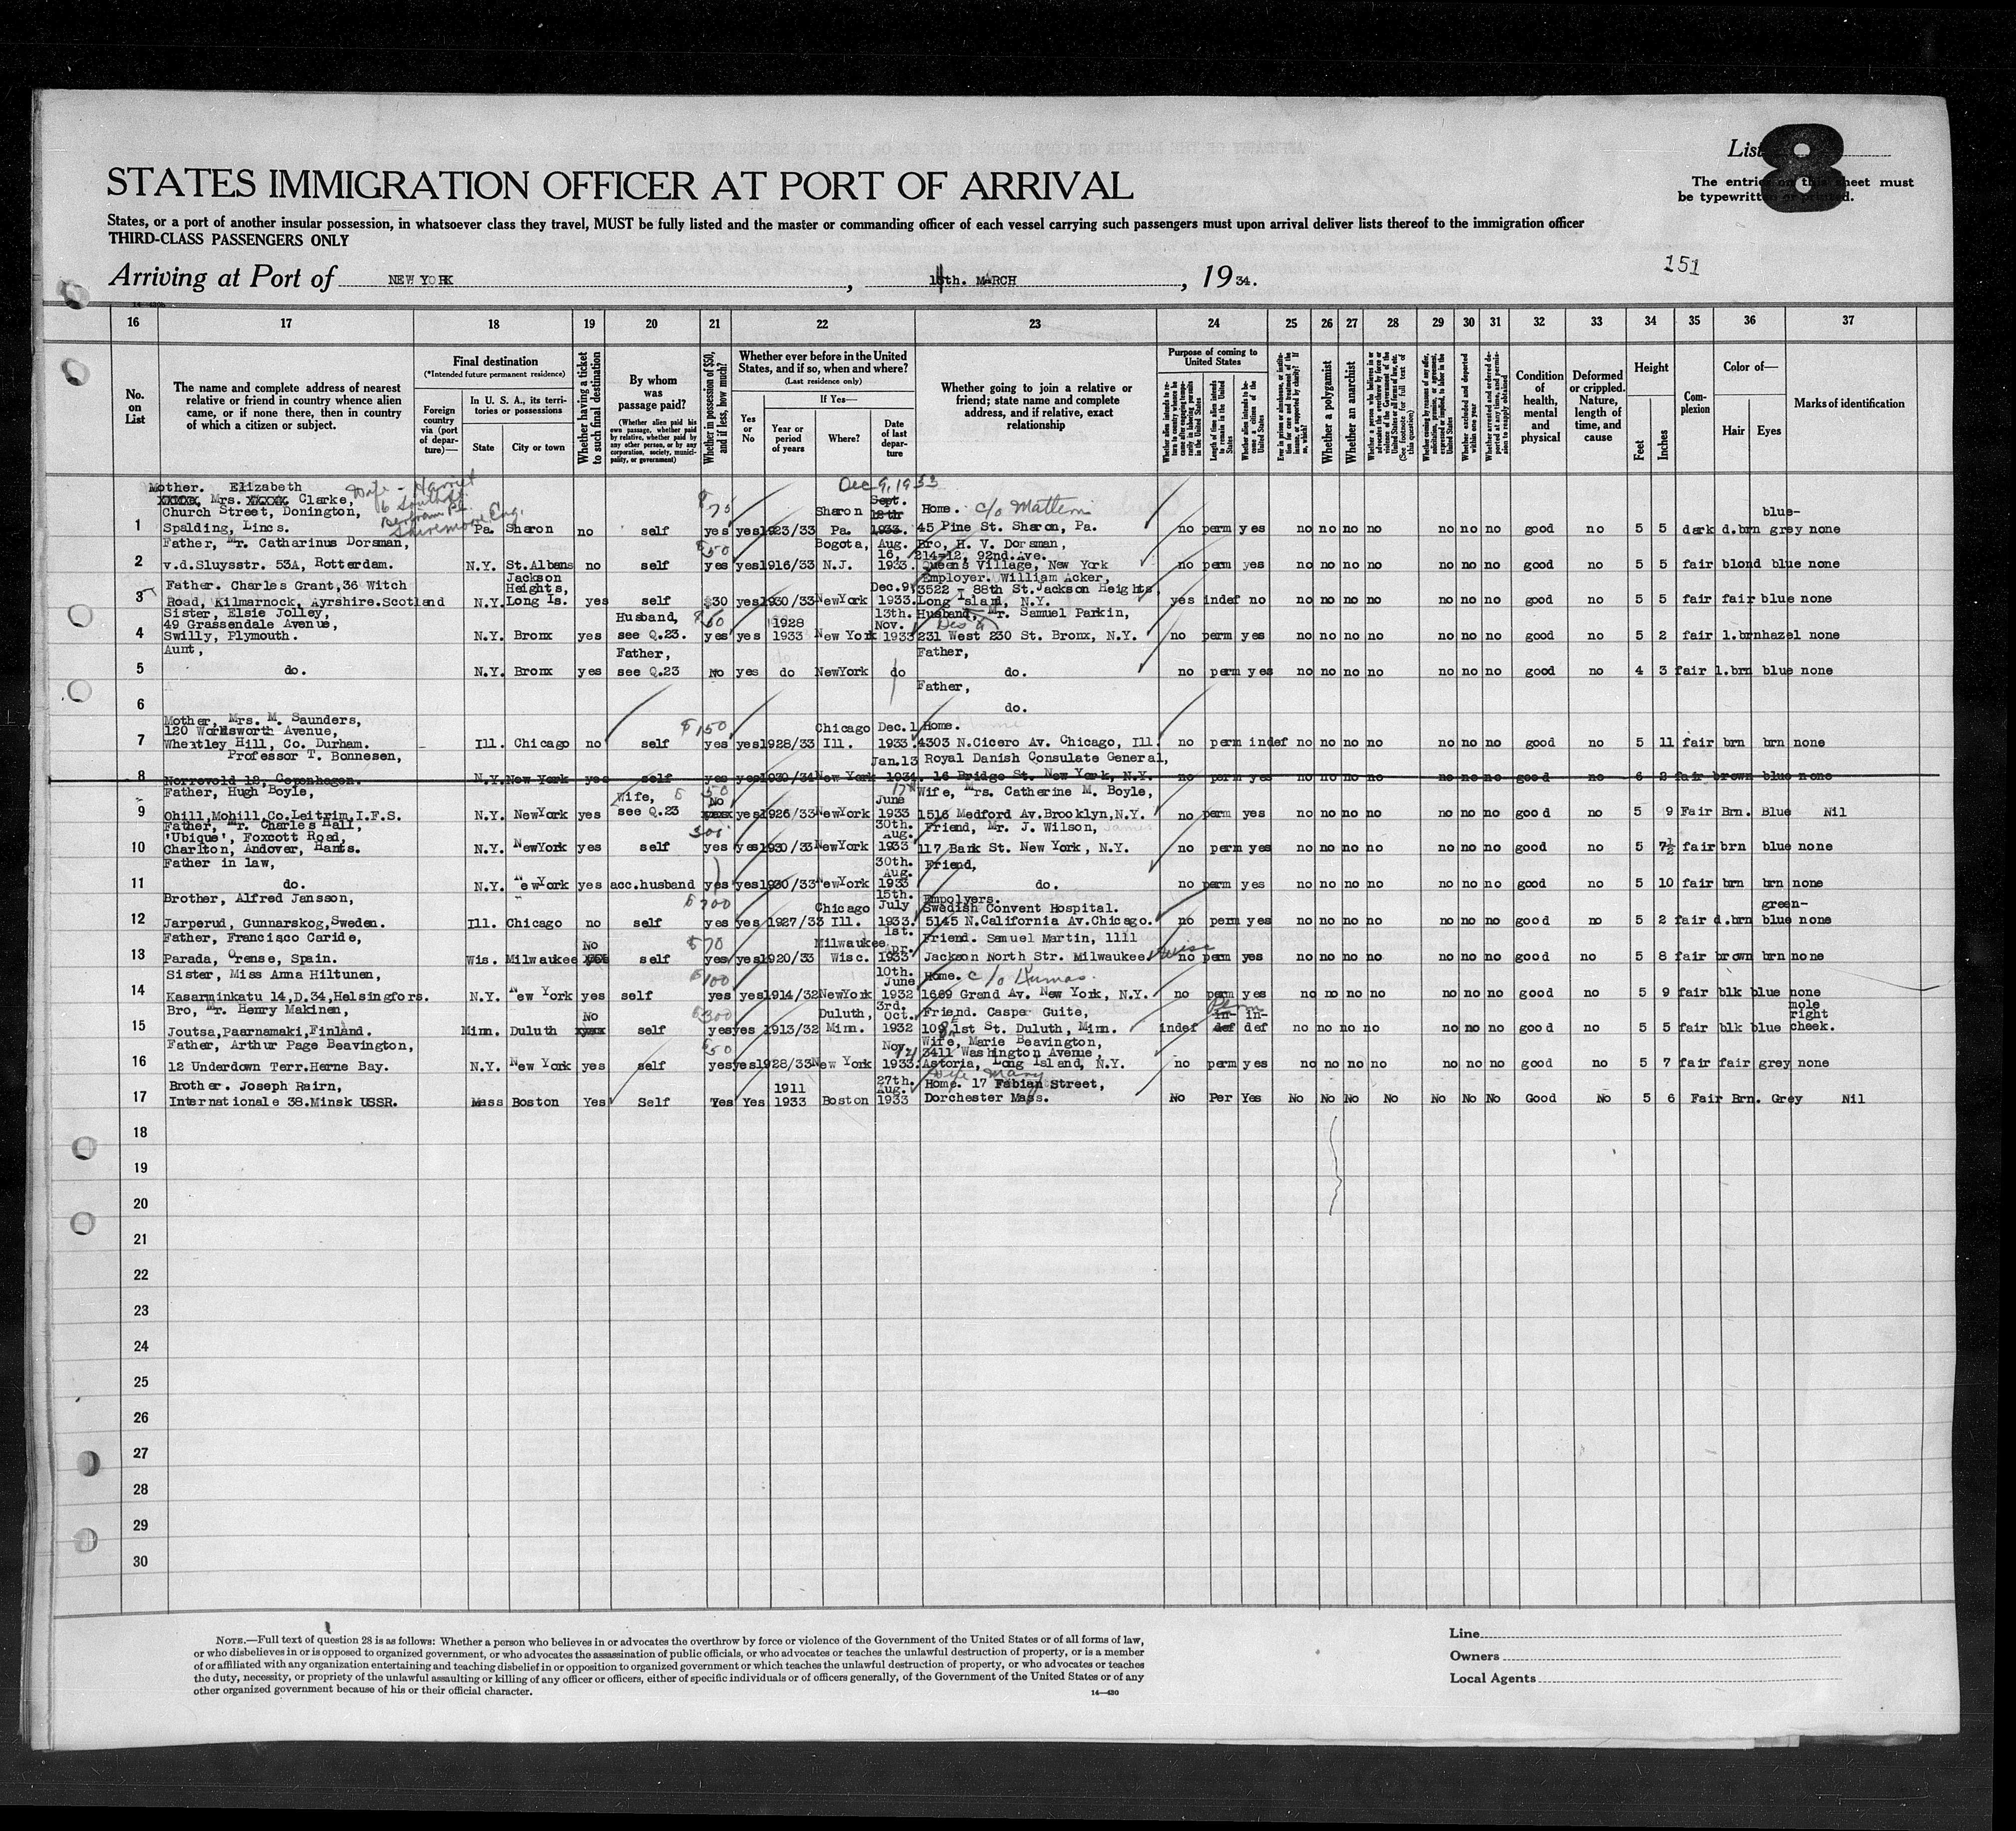 List 8
The entries on this sheet must
be typewritten or printed.
STATES IMMIGRATION OFFICER AT PORT OF ARRIVAL
States, or a port of another insular possession, in whatsoever class they travel, MUST be fully listed and the master or commanding officer of each vessel carrying such passengers must upon arrival deliver lists thereof to the immigration officer
THIRD-CLASS PASSENGERS ONLY
151
Arriving at Port of NEW YORK, th. MARCH, 1934.
16 17 18 19 20 21 22 23 24 25 26 27 28 29 30 31 32 33 34 35 36 37
No. on List
The name and complete address of nearest relative or friend in country whence alien came, or if none there, then in country of which a citizen or subject.
Final destination
(*Intended future permanent residence)
Foreign country via (port of departure)—
In U. S. A., its territories or possessions
State
City or town
Whether having a ticket to such final destination
By whom was passage paid?
(Whether alien paid his own passage, whether paid by relative, whether paid by any other person, or by any corporation, society, municipality, or government)
Whether in possession of $50, and if less, how much?
Whether ever before in the United States, and if so, when and where?
(Last residence only)
Yes or No
If Yes—
Year or period of years
Where?
Date of last departure
Whether going to join a relative or friend; state name and complete address, and if relative, exact relationship
Purpose of coming to United States
Length of time alien intends to remain in the United States
Whether alien intends to become a citizen of the United States
Whether a polygamist
Whether an anarchist
Condition of health, mental and physical
Deformed or crippled. Nature, length of time, and cause
Height
Feet
Inches
Complexion
Color of—
Hair
Eyes
Marks of identification
Dec 9, 1933
1 Mother. Elizabeth Mrs. Clarke, Church Street, Donington, Spalding, Lincs. Wife - Harriet Pa. Sharon no self $75 yes yes 1923/33 Sharon Pa. Sept. 18th 1933. Home. c/o Mattern 45 Pine St. Sharon, Pa. no perm yes no no no no no no no good no 5 5 dark d.brn blue-grey none
2 Father, Mr. Catharinus Dorsman, v.d.Sluysstr. 53A, Rotterdam. N.Y. St.Albans no self $50 yes yes 1916/33 Bogota, N.J. Aug. 16, 1933. Bro, H. V. Dorsman, 214-12, 92nd.Ave. Queens Village, New York no perm yes no no no no no no no good no 5 5 fair blond blue none
3 Father. Charles Grant, 36 Witch Road, Kilmarnock, Ayrshire.Scotland N.Y. Jackson Heights, Long Is. yes self $30 yes 1930/33 NewYork Dec.9, 1933. Employer. William Acker, 3522 - 88th St.Jackson Heights, Long Island, N.Y. yes indef no no no no no no no no good no 5 5 fair fair blue none
4 Sister, Elsie Jolley, 49 Grassendale Avenue, Swilly, Plymouth. N.Y. Bronx yes Husband, see Q.23. yes yes 1928 1933 New York 13th. Nov. 1933 Husband, Mr. Samuel Parkin, 231 West 230 St. Bronx, N.Y. no perm yes no no no no no no no good no 5 2 fair l.brn hazel none
5 Aunt, do. N.Y. Bronx yes Father, see Q.23 No yes do NewYork do Father, do. no perm yes no no no no no no no good no 4 3 fair l.brn blue none
6 Father, do.
7 Mother, Mrs. M. Saunders, 120 Wordsworth Avenue, Wheatley Hill, Co. Durham. Ill. Chicago no self $150 yes yes 1928/33 Chicago Ill. Dec.1 1933. Home. 4303 N.Cicero Av. Chicago, Ill. no perm indef no no no no no no no good no 5 11 fair brn brn none
8 Professor T. Bonnesen, Norrevold 12, Copenhagen. N.Y. New York yes self yes yes 1930/34 New York Jan.13 1934. Royal Danish Consulate General, 16 Bridge St. New York, N.Y. no perm yes no no no no no no no good no 6 2 fair brown blue none
9 Father, Hugh Boyle, Ohill,Mohill,Co.Leitrim,I.F.S. N.Y. NewYork yes Wife, see Q.23 $50 No yes 1926/33 NewYork June 1933 Wife, Mrs. Catherine M. Boyle, 1516 Medford Av.Brooklyn,N.Y. no perm yes no no no no no no no good no 5 9 Fair Brn. Blue Nil
10 Father, Mr. Charles Hall, 'Ubique', Foxcott Road, Charlton, Andover, Hants. N.Y. NewYork yes self 300 yes yes 1930/33 NewYork 30th. Aug. 1933 Friend, Mr. J. Wilson, James 117 Bank St. New York, N.Y. no perm yes no no no no no no no good no 5 7½ fair brn blue none
11 Father in law, do. N.Y. NewYork yes acc.husband yes yes 1930/33 NewYork 30th. Aug. 1933 Friend, do. no perm yes no no no no no no no good no 5 10 fair brn brn none
12 Brother, Alfred Jansson, Jarperud, Gunnarskog,Sweden. Ill. Chicago no self $700 yes yes 1927/33 Chicago Ill. 15th. July 1933. Empolyers. Swedish Convent Hospital. 5145 N.California Av.Chicago. no perm yes no no no no no no no good no 5 2 fair d.brn green-blue none
13 Father, Francisco Caride, Parada, Orense, Spain. Wis. Milwaukee No self $70 yes yes 1920/33 Milwaukee Wisc. 1st. Apr. 1933 Friend. Samuel Martin, 1111 Jackson North Str. Milwaukee Wisc no perm yes no no no no no no no good no 5 8 fair brown brn none
14 Sister, Miss Anna Hiltunen, Kasarminkatu 14,D.34,Helsingfors. N.Y. New York yes self $100 yes yes 1914/32 NewYork 10th. June 1932 Home. c/o 1669 Grand Av. New York, N.Y. no perm yes no no no no no no no good no 5 9 fair blk blue none
15 Bro, Mr. Henry Makinen, Joutsa,Paarnamaki,Finland. Minn. Duluth No self $300 yes yes 1913/32 Duluth, Minn. 3rd. Oct. 1932 Friend. Caspe Guite, 109 1st St. Duluth, Minn. indef in-def in-def Perm no no no no no no no good no 5 5 fair blk blue mole right cheek.
16 Father, Arthur Page Beavington, 12 Underdown Terr.Herne Bay. N.Y. New York yes self $50 yes yes 1928/33 New York Nov. 1933. Wife, Marie Beavington, 3411 Washington Avenue, Astoria, Long Island, N.Y. no perm yes no no no no no no no good no 5 7 fair fair grey none
17 Brother. Joseph Rairn, Internationale 38.Minsk USSR. Mass Boston Yes Self Yes Yes 1911 1933 Boston 27th. Aug. 1933 Wife Mary Home. 17 Fabian Street, Dorchester Mass. No Per Yes No No No No No No No Good No 5 6 Fair Brn. Grey Nil
18
19
20
21
22
23
24
25
26
27
28
29
30
NOTE.—Full text of question 28 is as follows: Whether a person who believes in or advocates the overthrow by force or violence of the Government of the United States or of all forms of law,
or who disbelieves in or is opposed to organized government, or who advocates the assassination of public officials, or who advocates or teaches the unlawful destruction of property, or is a member
of or affiliated with any organization entertaining and teaching disbelief in or opposition to organized government or which teaches the unlawful destruction of property, or who advocates or teaches
the duty, necessity, or propriety of the unlawful assaulting or killing of any officer or officers, either of specific individuals or of officers generally, of the Government of the United States or of any
other organized government because of his or their official character.
14—430
Line
Owners
Local Agents